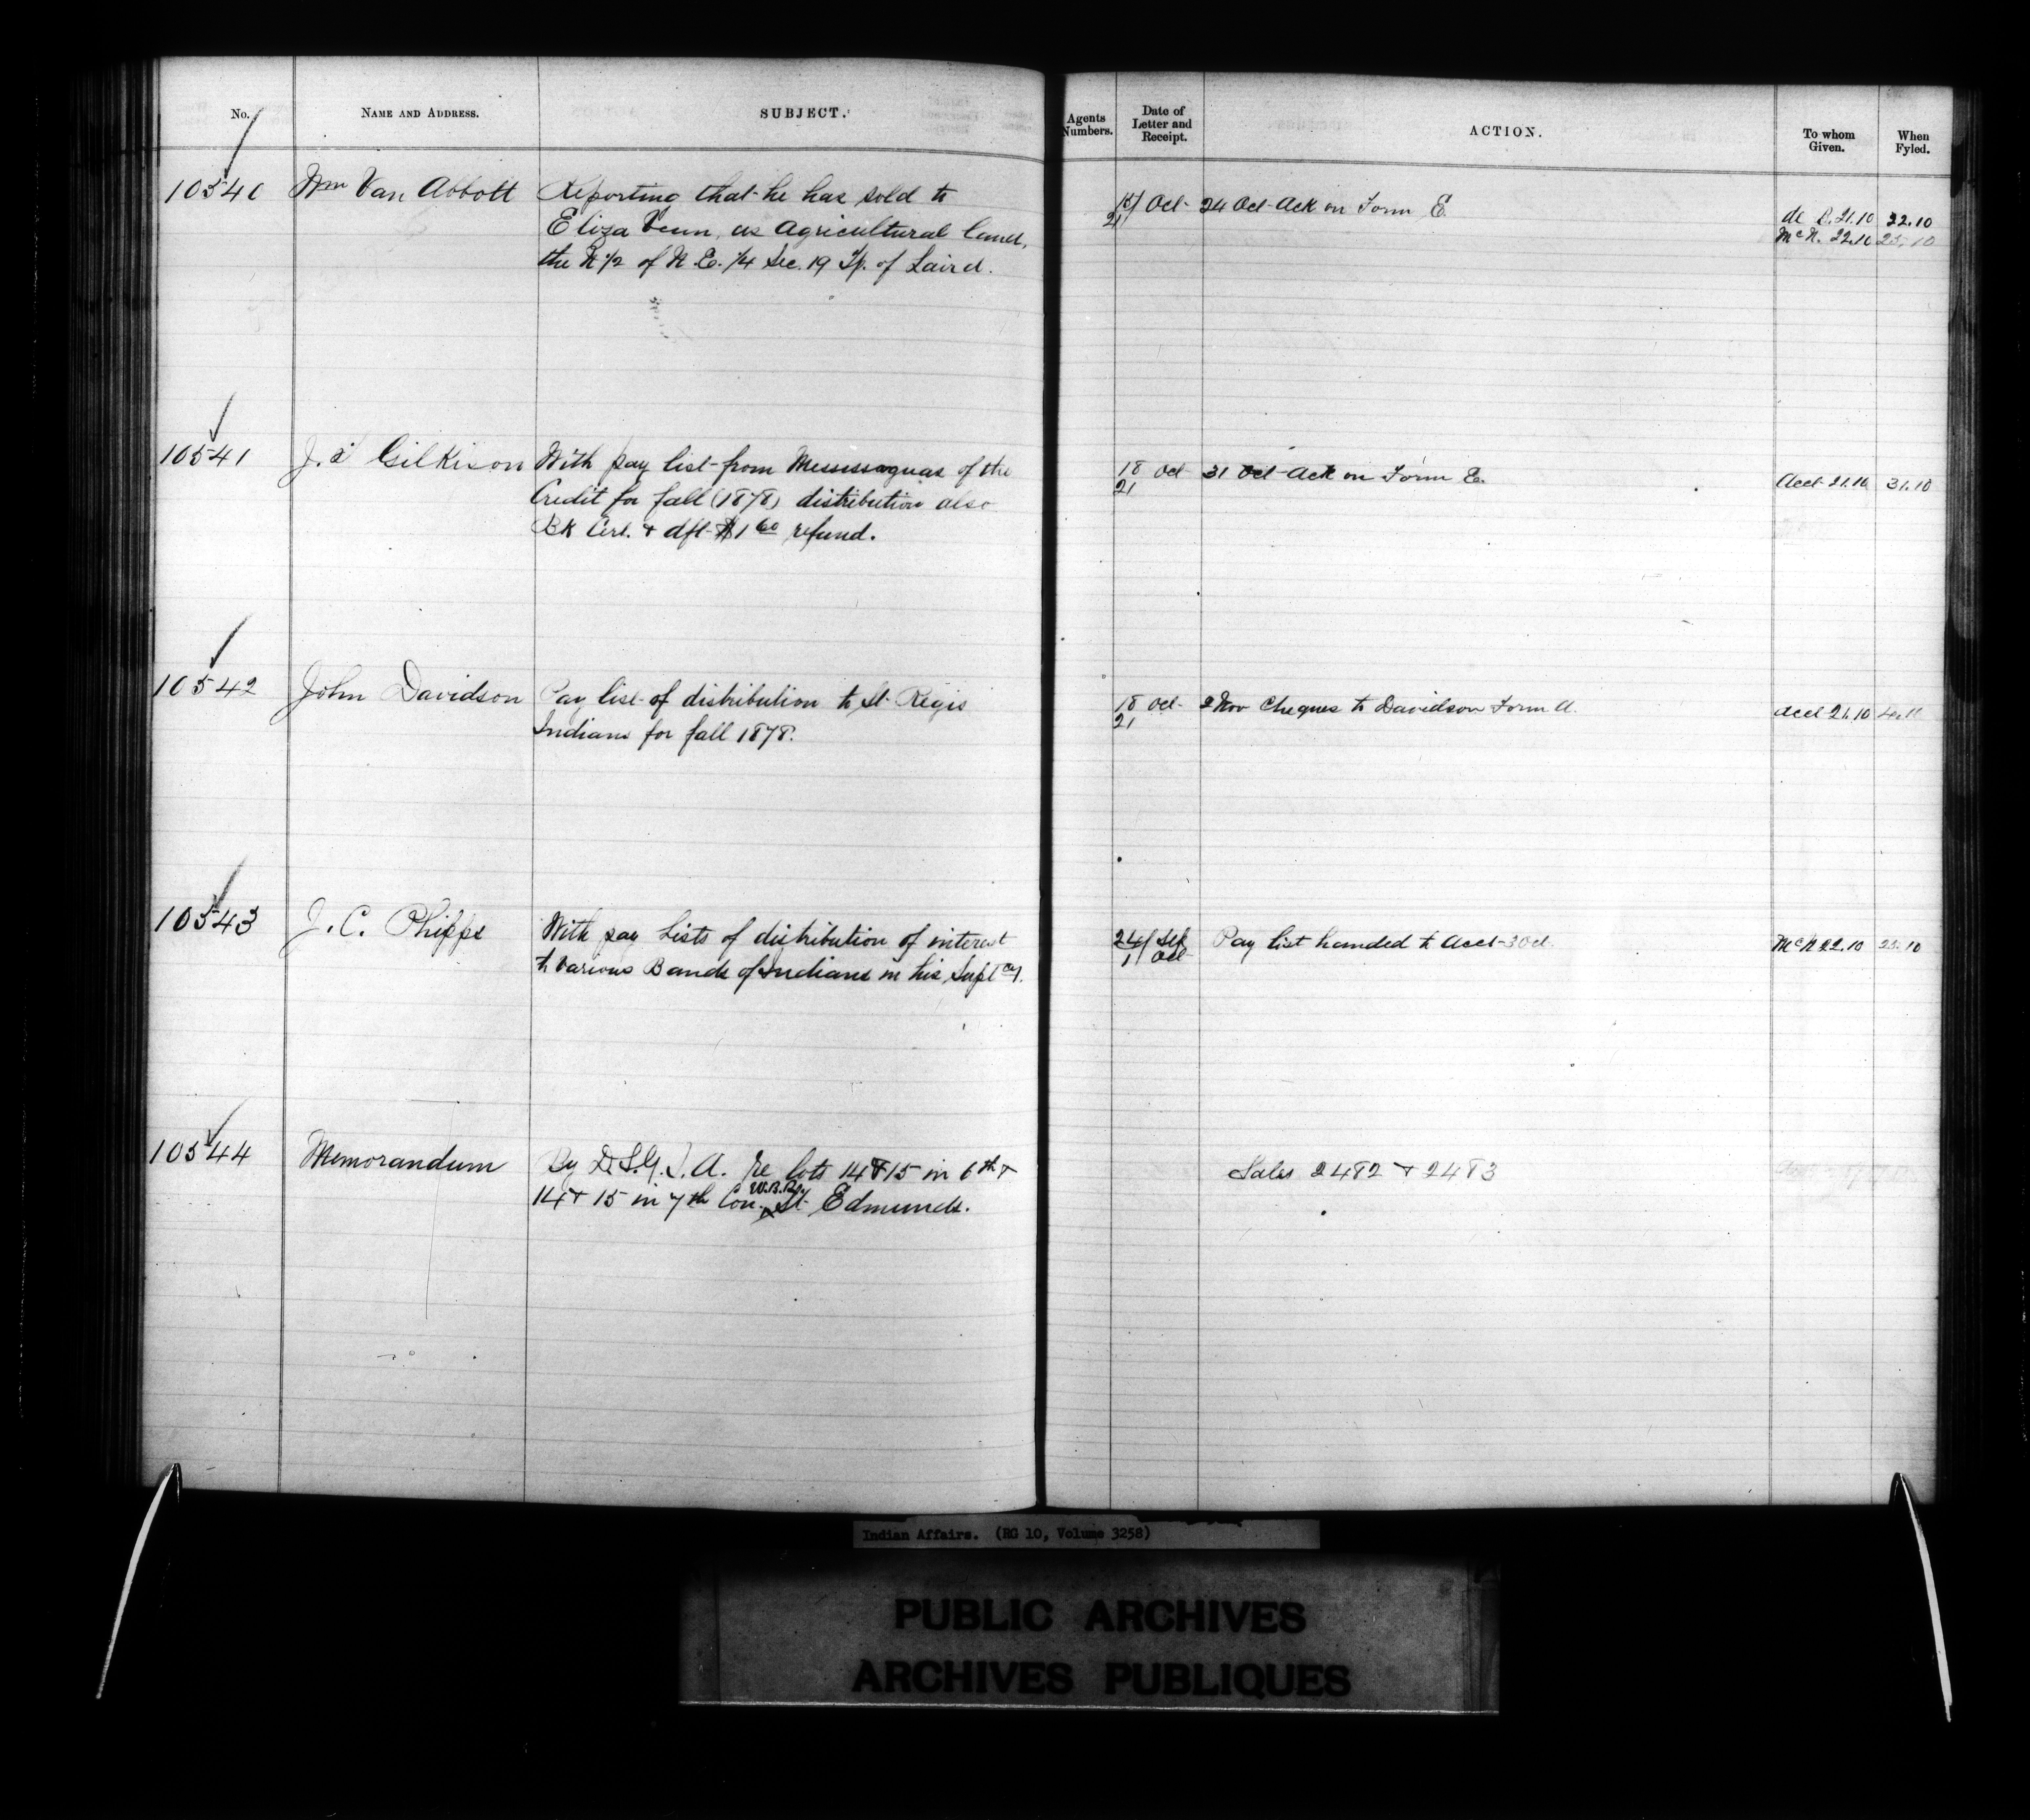 No. NAME AND ADDRESS. SUBJECT.
10540 Wm Van Abbott Reporting that he has sold to
Eliza Venn, as Agricultural land,
the N ½ of N.E. ¼ Sec. 19 Tp. of Laird.
10541 J. Gilkison With pay list from Mississaguas of the
Credit for fall (1878) distribution also
Bk Cert. + dft $1 60 refund.
10542 John Davidson Pay list of distribution to St. Regis
Indians for fall 1878.
10543 J. C. Phipps With pay Lists of distribution of interest
to Various Bands of Indians in his Suptcy.
10544 Memorandum By D.S.G.I.A. re lots 14 & 15 in 6th +
W.B.R.
14 + 15 in 7th Con. St. Edmunds.
Agents Numbers. Date of Letter and Receipt. ACTION. To whom Given. When Fyled.
Oct 24 Oct Ack on Form E. de B. 21.10 22.10
21 McN. 22.10 25.10
18 Oct 31 Oct Ack on Form E. Acct 21.10 31.10
21
18 Oct 2 Nov Cheques to Davidson Form A. Acct 21.10
21
24/ Sep Pay list handed to Acct 3 Oct. McN 22.10 23.10
1 Oct
Sales 2482 + 2483
Indian Affairs. (RG 10, Volume 3258)
PUBLIC ARCHIVES
ARCHIVES PUBLIQUES